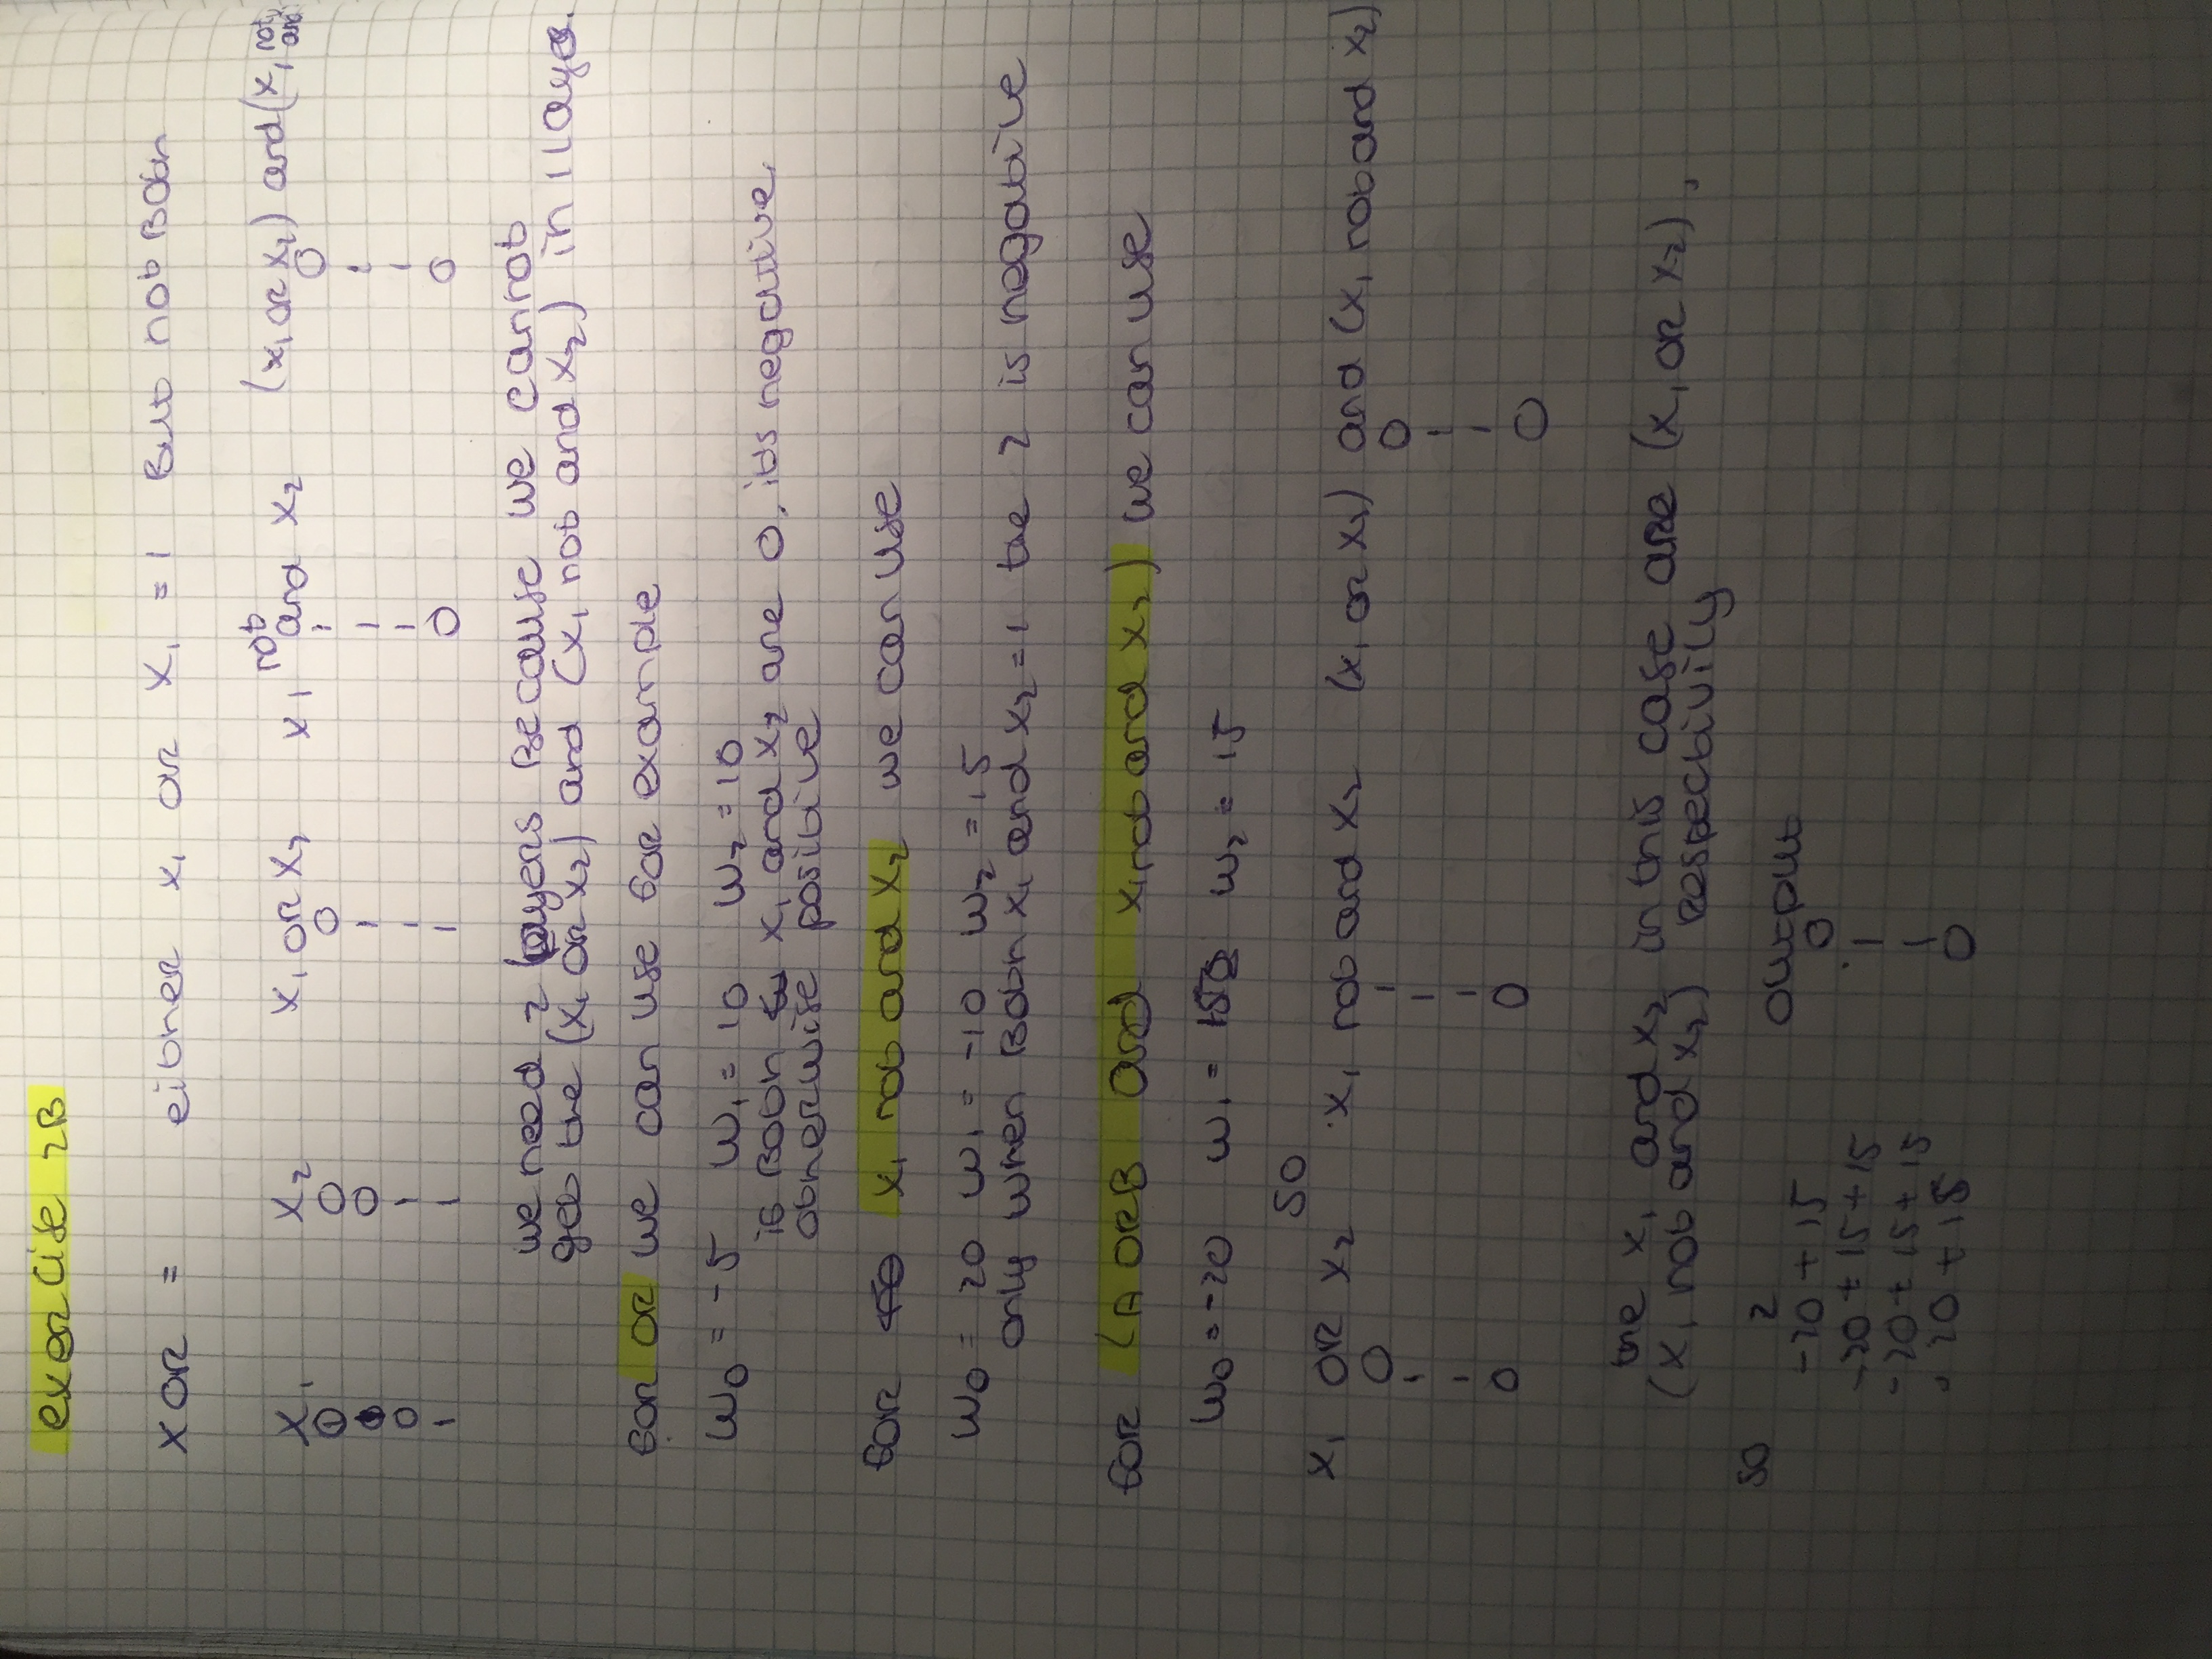 exercise 2B
XOR = either x1 or x1 = 1 But not Both
x1 x2 x1 or x2 x1 not and x2 (x1 or x2) and (x1 not and
0 0 0 1 0
0 1 1 1
0 1 1 1 1
1 1 1 0 0
we need 2 layers Because we cannot
get the (x1 or x2) and (x1 not and x2) in 1 layer.
for or we can use for example
w0 = -5 w1 = 10 w2 = 10
if Both x1 and x2 are 0, its negative,
otherwise positive
for x1 not and x2 we can use
w0 = 20 w1 = -10 w2 = 15
only when Both x1 and x2 = 1 the z is negative
for (A OR B and x1 not and x2) we can use
w0 = -20 w1 = w2 = 15
so
x1 or x2 x1 not and x2 (x1 or x2) and (x1 not and x2)
0 1 0
1 1 1
1 1 1
0 0 0
the x1 and x2 in this case are (x1 or x2),
(x1 not and x2) respectivily
so z output
-20 + 15 0
-20 + 15 + 15 1
-20 + 15 + 15 1
-20 + 15 0